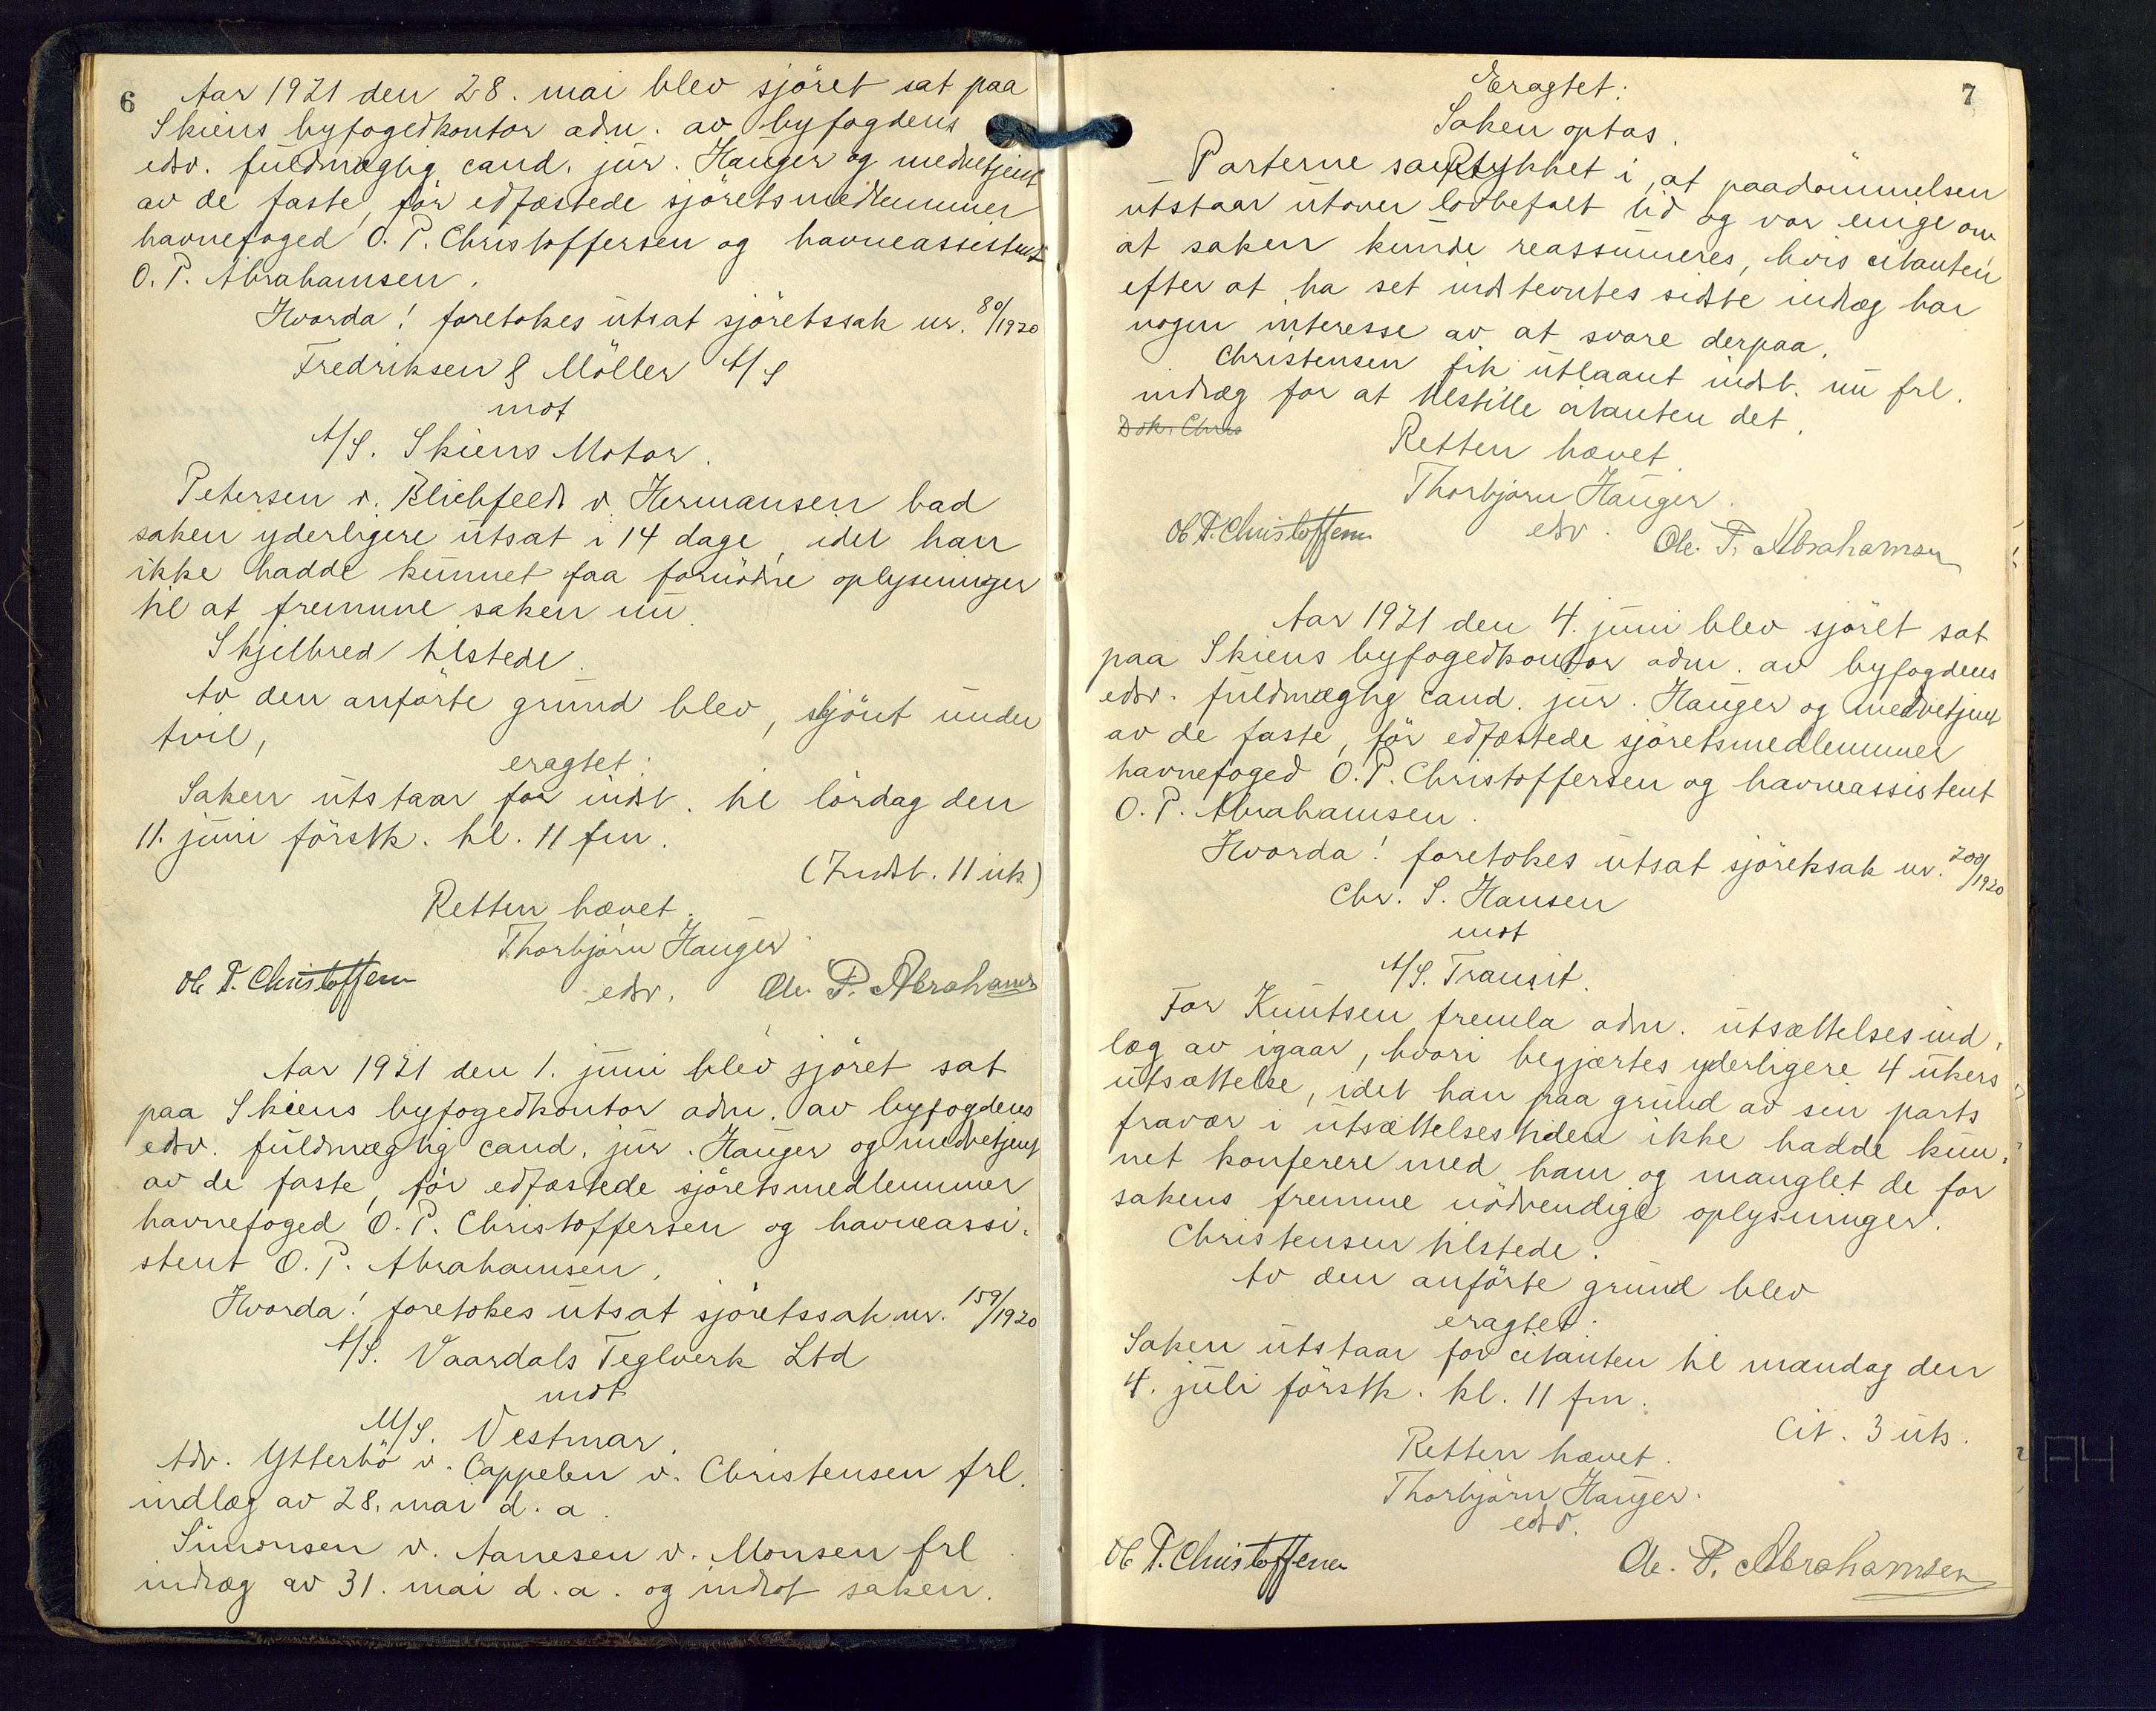 6
Aar 1921 den 28. mai blev sjöret sat paa
Skiens byfogedkontor adm. av byfogdens
edsv. fuldmægtig cand. jur. Hauger og medbetjent
av de faste, för edfæstede sjöretsmedlemmer
havnefoged O. P. Christoffersen og havneassistent
O. P. Abrahamsen.
Hvorda! foretokes utsat sjöretssak nr. 80/1920
Fredriksen & Möller A/S
mot
A/S. Skiens Motor.
Petersen v. Blichfeldt v. Hermansen bad
saken yderligere utsat i 14 dage, idet han
ikke hadde kunnet faa fornödne oplysninger
til at fremme saken nu.
Skjelbred tilstede.
Av den anförte grund blev, skjönt under
tvil,
eragtet:
Saken utstaar for indst. til lördag den
11. juni förstk. kl. 11 fm.
(Indst. 11 uk)
Retten hævet.
Thorbjörn Hauger
edsv.
Ole P. Christoffersen
Ole P. Abrahamsen
Aar 1921 den 1. juni blev sjöret sat
paa Skiens byfogedkontor adm. av byfogdens
edsv. fuldmægtig cand. jur. Hauger og medbetjent
av de faste, för edfæstede sjöretsmedlemmer
havnefoged O. P. Christoffersen og havneassi-
stent O. P. Abrahamsen.
Hvorda! foretokes utsat sjöretssak nr. 159/1920
A/S. Vaardals Teglverk Ltd
mot
M/S. Vestmar.
Adv. Ytterbö v. Cappelen v. Christensen frl.
indlæg av 28. mai d. a.
Simonsen v. Aanesen v. Monsen frl.
indlæg av 31. mai d. a. og indlot saken.
7
Eragtet:
Saken optas.
Parterne samtykket i, at paadömmelsen
utstaar utover lovbefalt tid og var enige om
at saken kunde reassumeres, hvis citanten
efter at ha set indstevntes sidste indlæg har
nogen interesse av at svare derpaa.
Christensen fik utlaant indst. nu frl.
indlæg for at tilstille citanten det.
Dok. Chris
Retten hævet.
Thorbjörn Hauger.
edsv.
Ole P. Christoffersen
Ole. P. Abrahamsen
Aar 1921 den 4. juni blev sjöret sat
paa Skiens byfogedkontor adm. av byfogdens
edsv. fuldmægtig cand. jur. Hauger og medbetjent
av de faste, för edfæstede sjöretsmedlemmer
havnefoged O. P. Christoffersen og havneassistent
O. P. Abrahamsen.
Hvorda! foretokes utsat sjöretssak nr. 200/1920
Chr. S. Hansen
mot
A/S. Transit.
For Knutsen fremla adm. utsættelsesind-
læg av igaar, hvori begjærtes yderligere 4 ukers
utsættelse, idet han paa grund av sin parts
fravær i utsættelsestiden ikke hadde kun-
net konferere med ham og manglet de for
sakens fremme nödvendige oplysninger.
Christensen tilstede.
Av den anförte grund blev
eragtet:
Saken utstaar for citanten til mandag den
4. juli förstk. kl. 11 fm.
Cit. 3 uts.
Retten hævet.
Thorbjörn Hauger.
edsv.
Ole P. Christoffersen
Ole. P. Abrahamsen